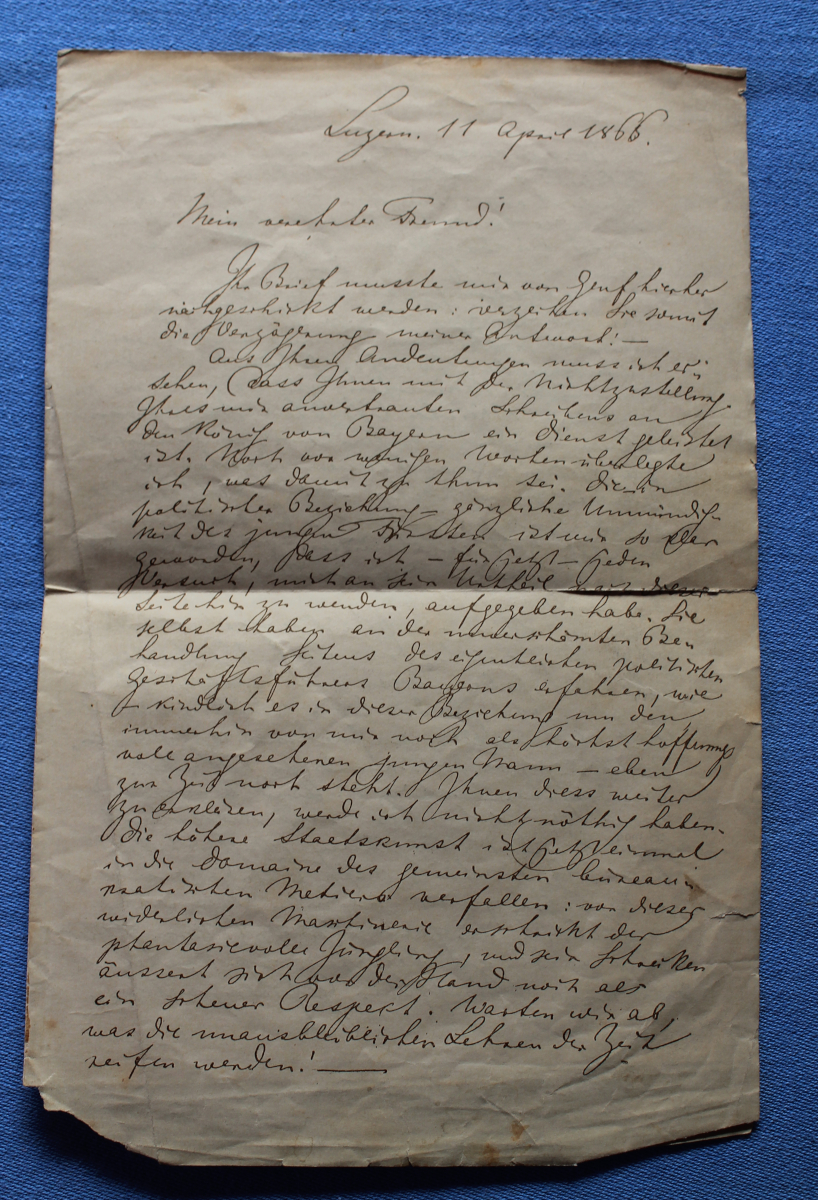 Luzern. 11 April 1866.
Mein verehrter Freund!
Ihr Brief musste mir von Genf hierher
nachgeschickt werden: verzeihen Sie somit
die Verzögerung meiner Antwort! —
Aus Ihren Andeutungen muss ich er-
sehen, dass Ihnen mit der Nichtzustellung
Ihres mir anvertrauten Schreibens an
den König von Bayern ein Dienst geleistet
ist. Noch vor wenigen Wochen überlegte
ich, was damit zu thun sei. Die in
politischer Beziehung gänzliche Unmündig-
keit des jungen Fürsten ist mir so klar
geworden, dass ich — für jetzt — jeden
Versuch, mich an sein Urtheil nach dieser
Seite hin zu wenden, aufgegeben habe. Sie
selbst haben an der unverschämten Be-
handlung Seitens des eigentlichen politischen
Geschäftsführers Bayerns erfahren, wie
kindlich es in dieser Beziehung um den
immerhin von mir noch als höchst hoffnungs
voll angesehenen jungen Mann — eben
zur Zeit noch steht. Ihnen diess weiter
zu erklären, werde ich nicht nöthig haben.
Die höhere Staatskunst ist jetzt einmal
in die Domaine des gemeinsten büreau-
kratischen Metiers verfallen: vor dieser
widerlichen Maschinerie erschrickt der
phantasievolle Jüngling, und sein Schrecken
äussert sich vor der Hand noch als
ein scheuer Respekt. Warten wir ab,
was die unausbleiblichen Lehren der Zeit
reifen werden! —